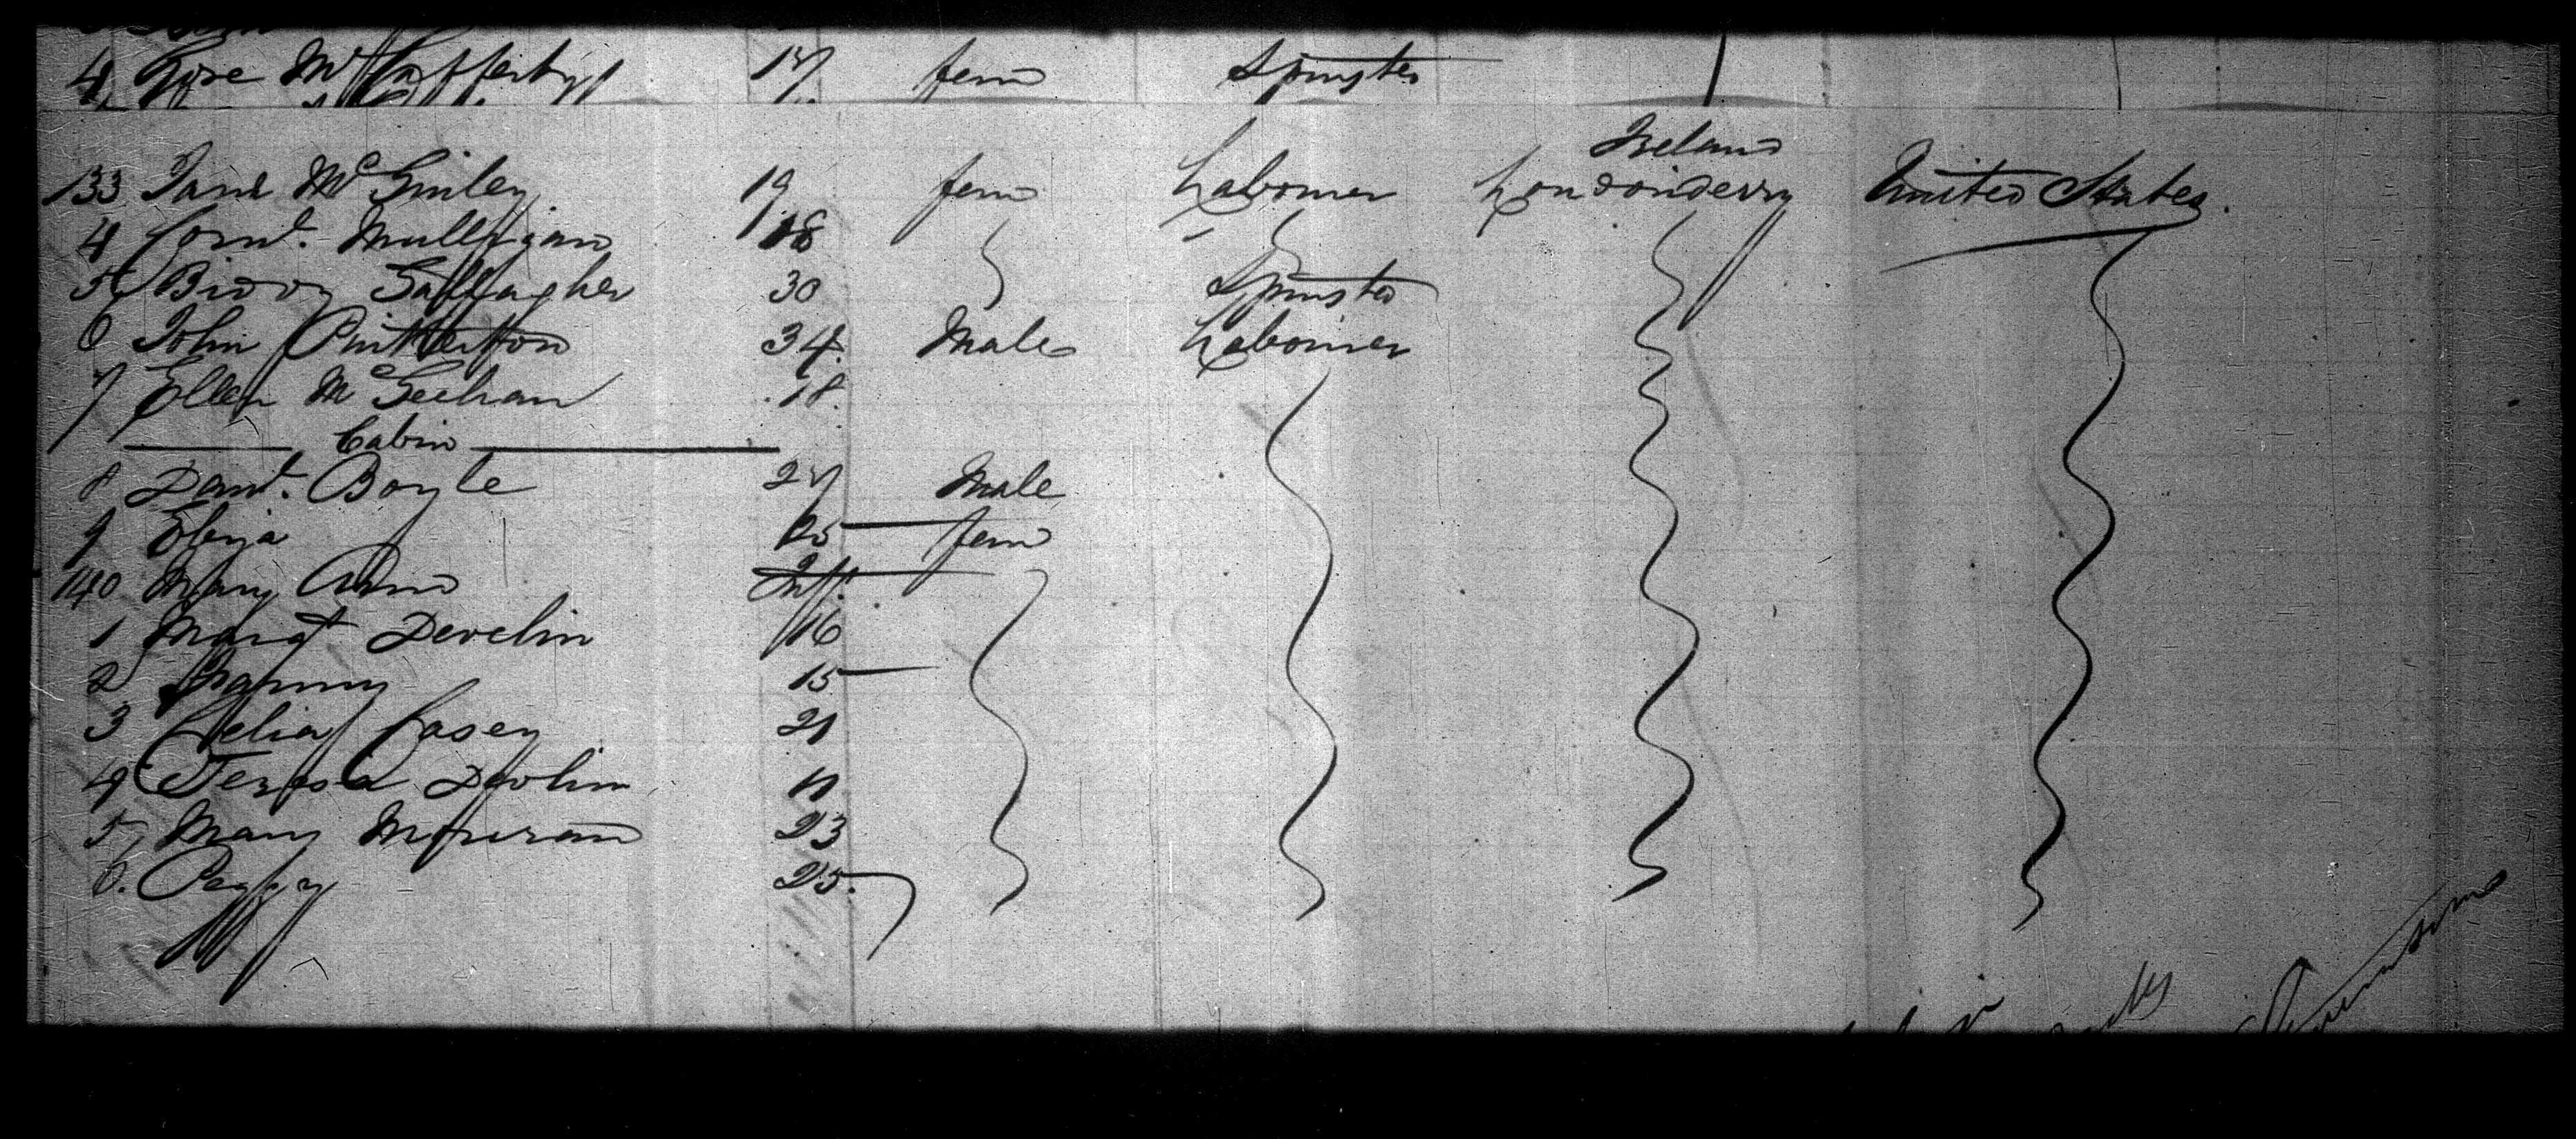 4 Rose McCafferty 17 fem Spinster
Ireland
133 Jane McGinley 19 fem Labourer Londonderry United States.
4 Cornl. Mulligan 18
5 Biddy Gallagher 30 Spinster
6 John Pinkerton 34 Male Labourer
7 Ellen McGeehan 18
Cabin
8 Danl. Boyle 27 Male
9 Eliza 25 fem
140 Mary Ann Inft.
1 Margt Develin 16
2 Fanny 15
3 Celia Casey 21
4 Teresa Devlin 11
5 Mary 23
6. Peggy 25.